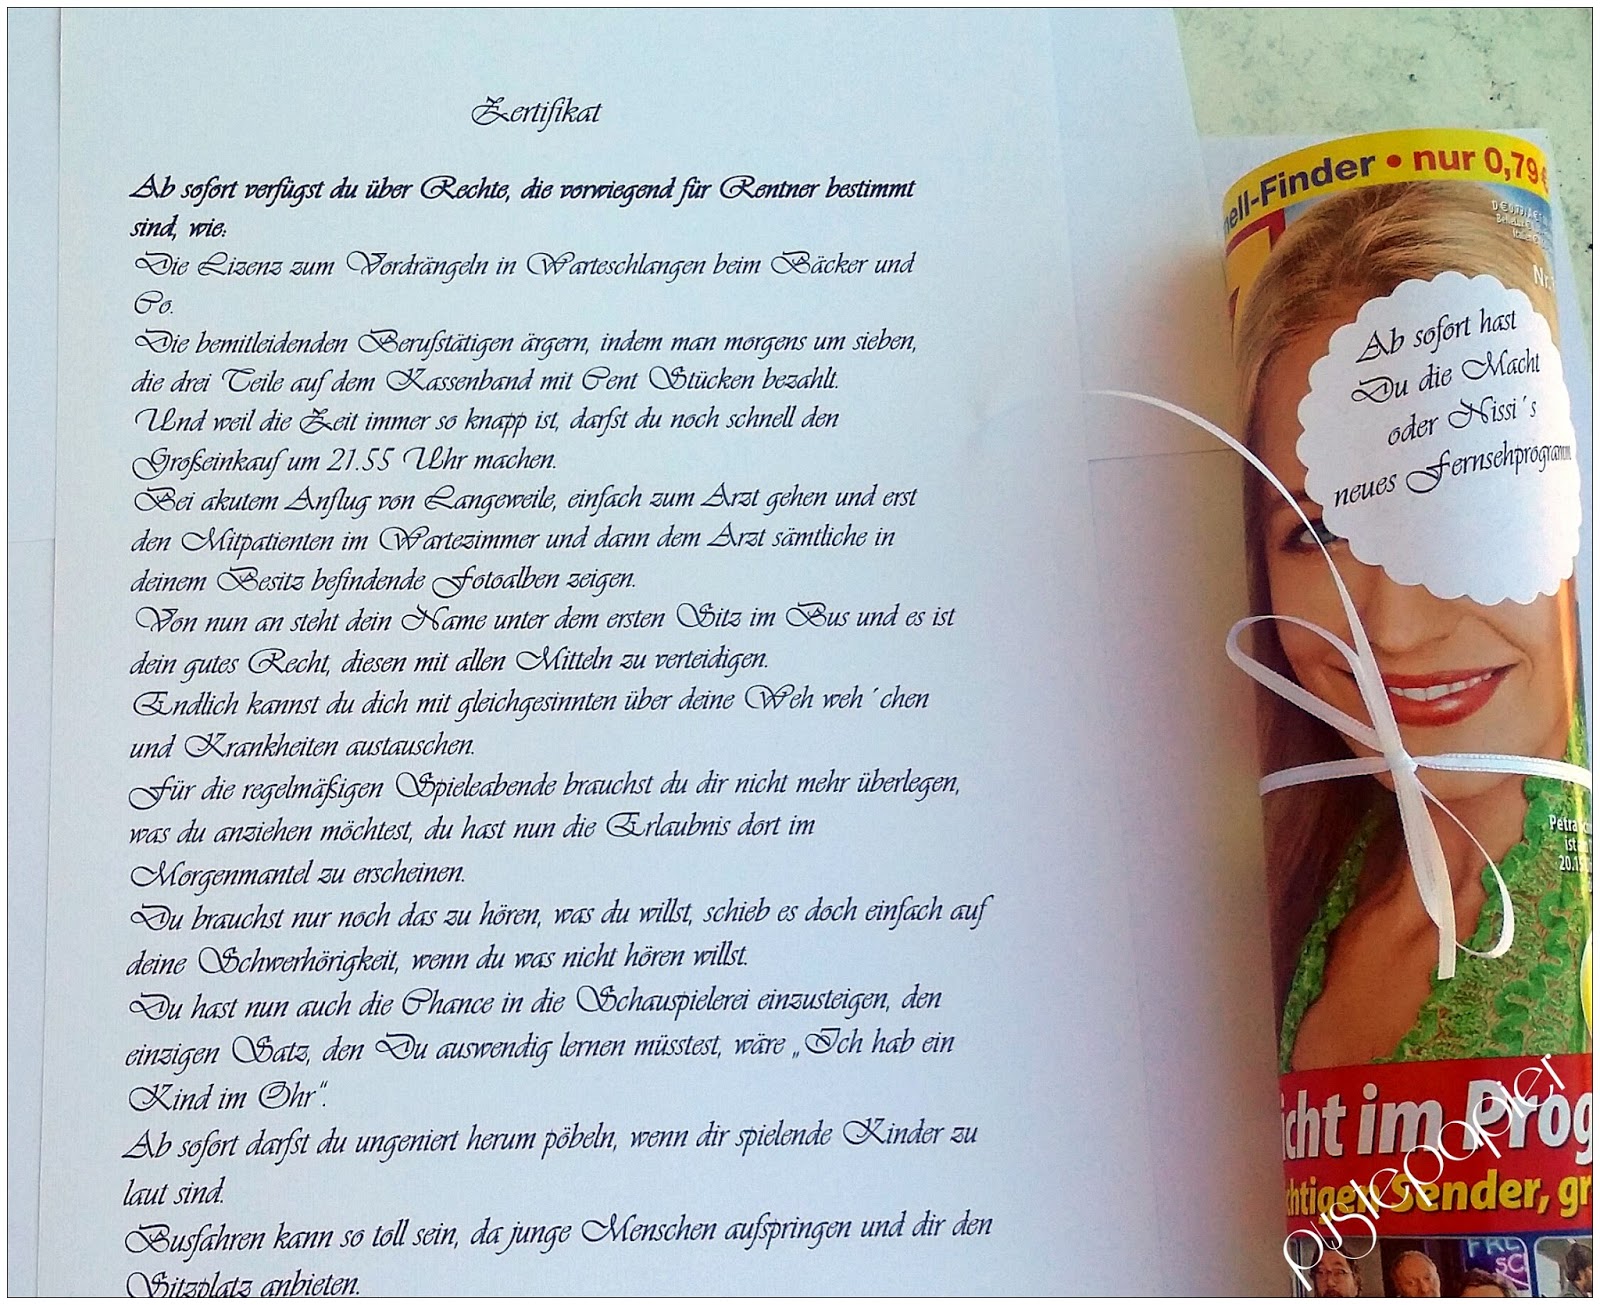 Zertifikat
Ab sofort verfügst du über Rechte, die vorwiegend für Rentner bestimmt
sind, wie:
Die Lizenz zum Vordrängeln in Warteschlangen beim Bäcker und
Co.
Die bemitleidenden Berufstätigen ärgern, indem man morgens um sieben,
die drei Teile auf dem Kassenband mit Cent Stücken bezahlt.
Und weil die Zeit immer so knapp ist, darfst du noch schnell den
Großeinkauf um 21.55 Uhr machen.
Bei akutem Anflug von Langeweile, einfach zum Arzt gehen und erst
den Mitpatienten im Wartezimmer und dann dem Arzt sämtliche in
deinem Besitz befindende Fotoalben zeigen.
Von nun an steht dein Name unter dem ersten Sitz im Bus und es ist
dein gutes Recht, diesen mit allen Mitteln zu verteidigen.
Endlich kannst du dich mit gleichgesinnten über deine Weh weh´chen
und Krankheiten austauschen.
Für die regelmäßigen Spieleabende brauchst du dir nicht mehr überlegen,
was du anziehen möchtest, du hast nun die Erlaubnis dort im
Morgenmantel zu erscheinen.
Du brauchst nur noch das zu hören, was du willst, schieb es doch einfach auf
deine Schwerhörigkeit, wenn du was nicht hören willst.
Du hast nun auch die Chance in die Schauspielerei einzusteigen, den
einzigen Satz, den Du auswendig lernen müsstest, wäre „Ich hab ein
Kind im Ohr“.
Ab sofort darfst du ungeniert herum pöbeln, wenn dir spielende Kinder zu
laut sind.
Busfahren kann so toll sein, da junge Menschen aufspringen und dir den
Sitzplatz anbieten.
ell-Finder • nur 0,79€
Nr.
Ab sofort hast
Du die Macht
oder Nissi´s
neues Fernsehprogramm
Petra
ist
20.15
icht im Prog
chtigen Sender, gr
pustepapier